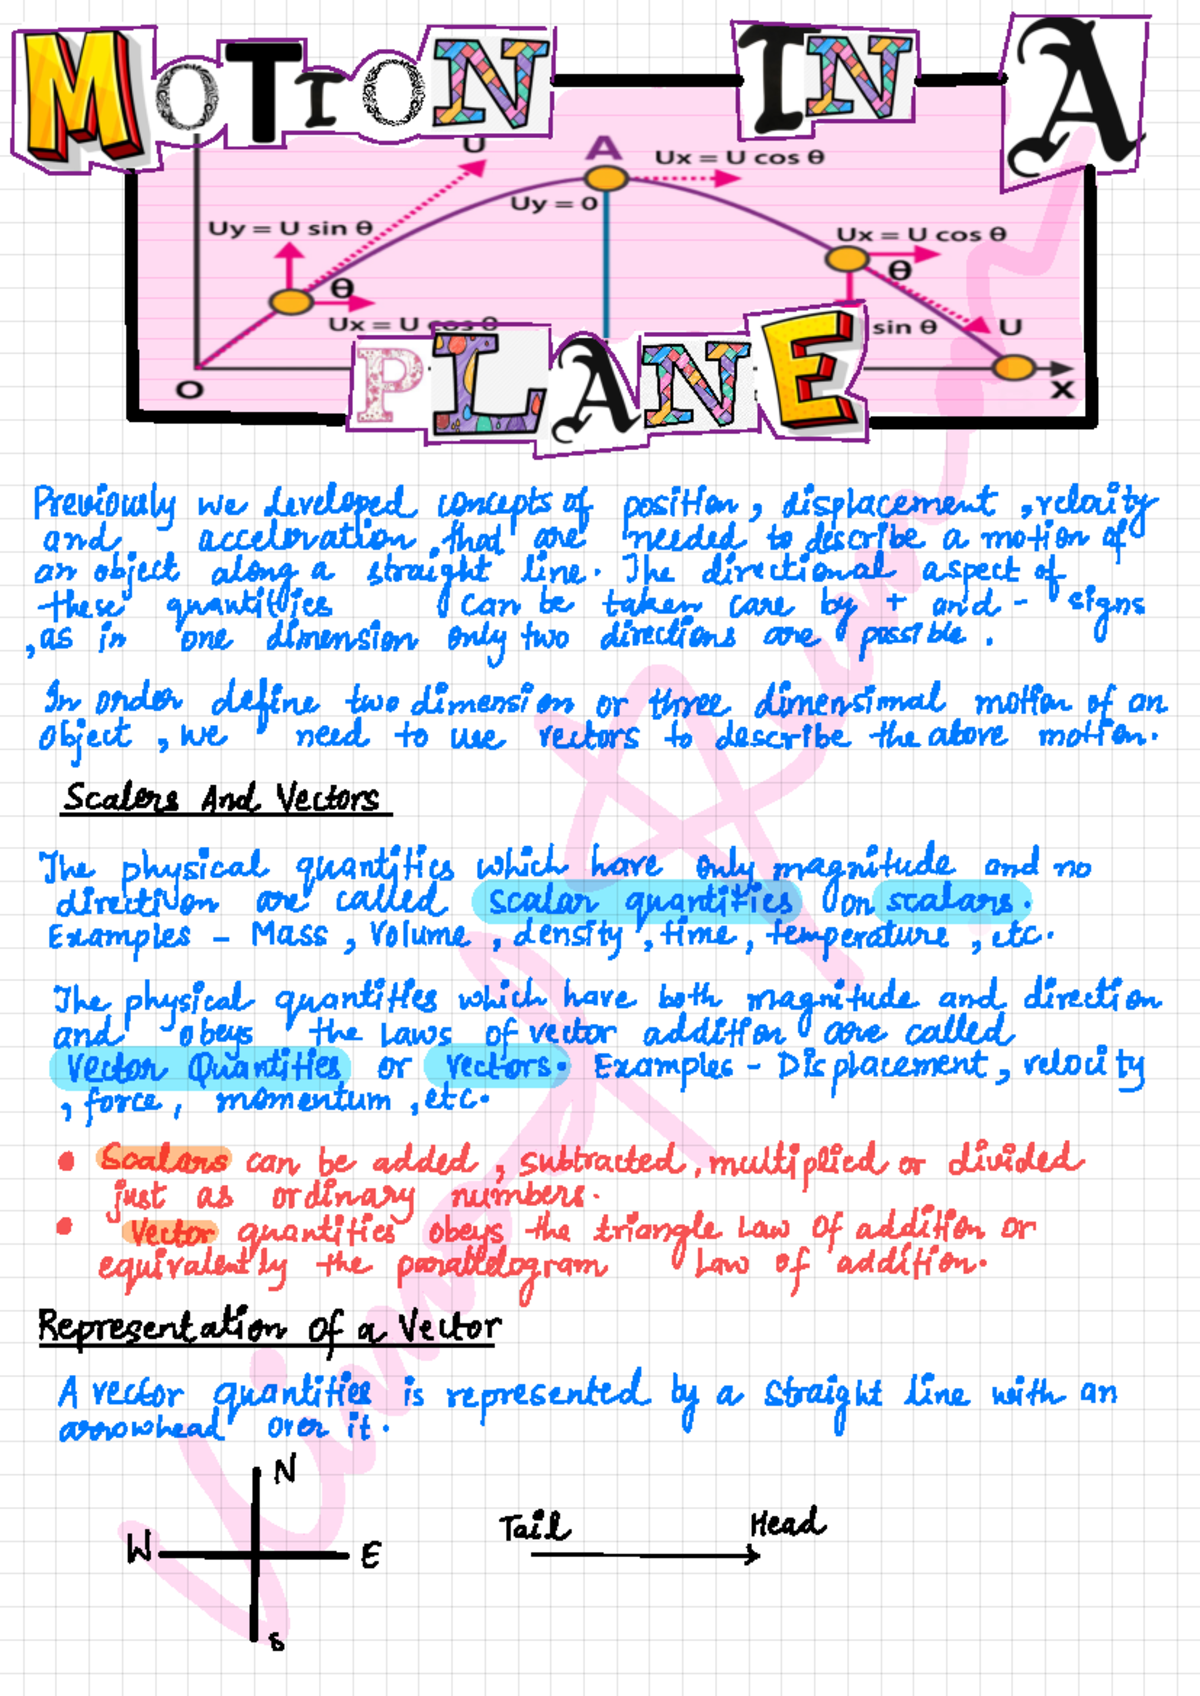 MOTION IN A
U
A
Ux = U cos θ
Uy = 0
Uy = U sin θ
Ux = U cos θ
θ
θ
Ux = U cos θ
sin θ
U
O
X
PLANE
Previously we developed concepts of position, displacement, velocity
and acceleration that are needed to describe a motion of
an object along a straight line. The directional aspect of
these quantities can be taken care by + and - signs
, as in one dimension only two directions are possible.
In order define two dimension or three dimensional motion of an
object, we need to use vectors to describe the above motion.
Scalers And Vectors
The physical quantities which have only magnitude and no
direction are called scalar quantities or scalars.
Examples - Mass, Volume, density, time, temperature, etc.
The physical quantities which have both magnitude and direction
and obeys the Laws of vector addition are called
Vector Quantities or Vectors. Examples - Displacement, velocity
, force, momentum, etc.
• Scalars can be added, subtracted, multiplied or divided
just as ordinary numbers.
• Vector quantities obeys the triangle Law of addition or
equivalently the parallelogram Law of addition.
Representation of a Vector
A vector quantities is represented by a straight line with an
arrowhead over it.
N
W
E
S
Tail
Head